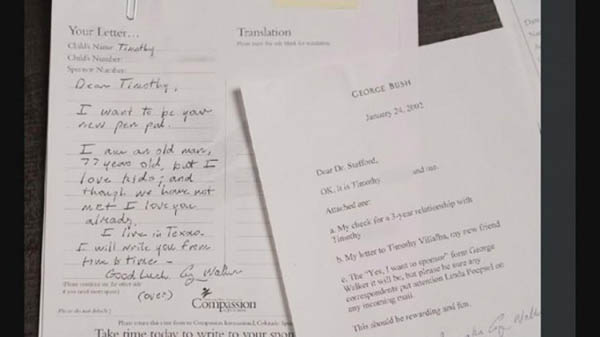 Your Letter...
Child's Name: Timothy
Child's Number:
Sponsor Number:
Dear Timothy,
I want to be your
new pen pal.
I am an old man,
77 years old, but I
love kids; and
though we have not
met I love you
already.
I live in Texas.
I will write you from
time to time -
Good Luck. G. Walker
(Please continue on the other side
if you need more space)
(over)
(Please do not detach)
Compassion
Take time today to write to your spon
Translation
GEORGE BUSH
January 24, 2002
Dear Dr. Stafford,
OK, it is Timothy and me.
Attached are:
a. My check for a 3-year relationship with
Timothy
b. My letter to Timothy Villalba, my new friend
c. The "Yes, I want to sponsor" form George
Walker it will be, but please be sure any
correspondents put attention Linda Poepsel on
any incoming mail.
This should be rewarding and fun.
G. Walker